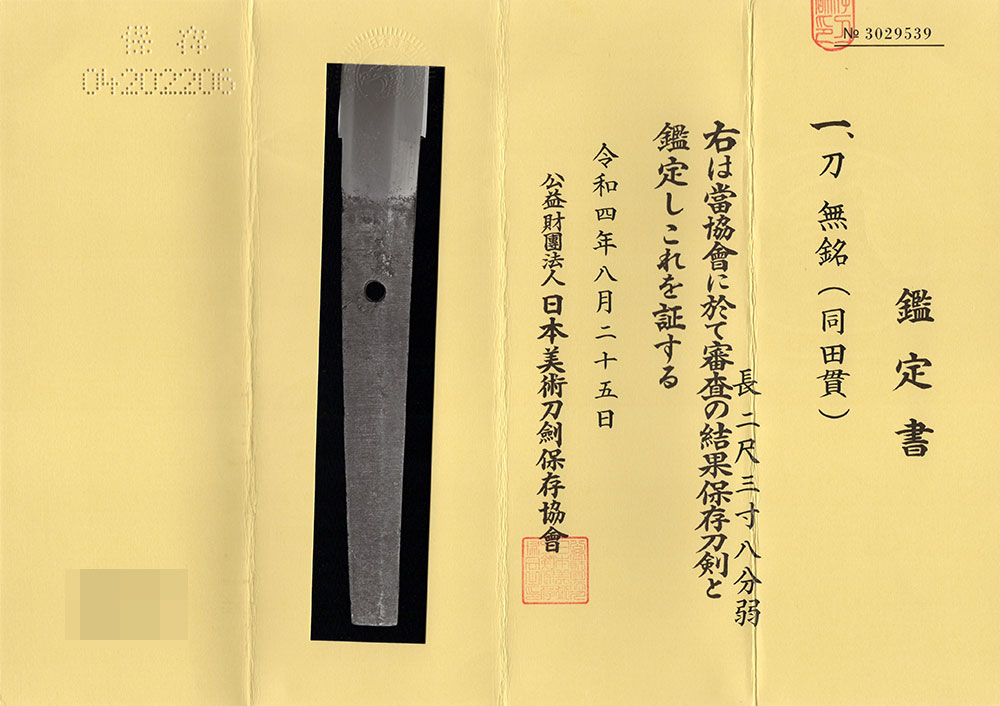 № 3029539
鑑定書
一、刀 無銘(同田貫)
長二尺三寸八分弱
右は當協會に於て審査の結果保存刀剣と
鑑定しこれを証する
令和四年八月二十五日
公益財團法人 日本美術刀劍保存協會
保存
04202206